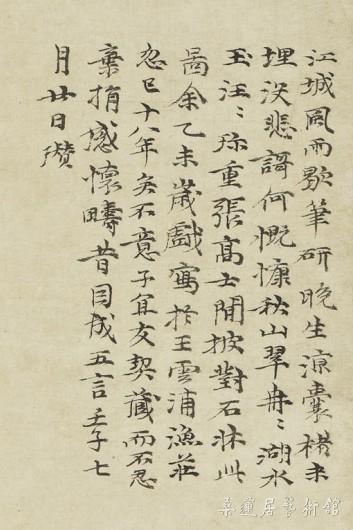 江城風雨歇筆研晚生涼囊楮未
埋沒悲謌何慨慷秋山翠冉〻湖水
玉汪〻珎重張高士閒披對石牀此
啚余乙未歲戲寫於王雲浦漁莊
忽已十八年矣不意子宜友契藏而不忍
棄捐感懷疇昔因成五言壬子七
月廿日瓚
桑蓮居藝術館